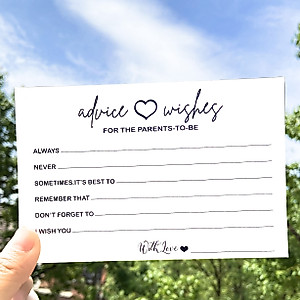 advice ♡ wishes
FOR THE PARENTS-TO-BE
ALWAYS
NEVER
SOMETIMES,IT'S BEST TO
REMEMBER THAT
DON'T FORGET TO
I WISH YOU
With Love ♥